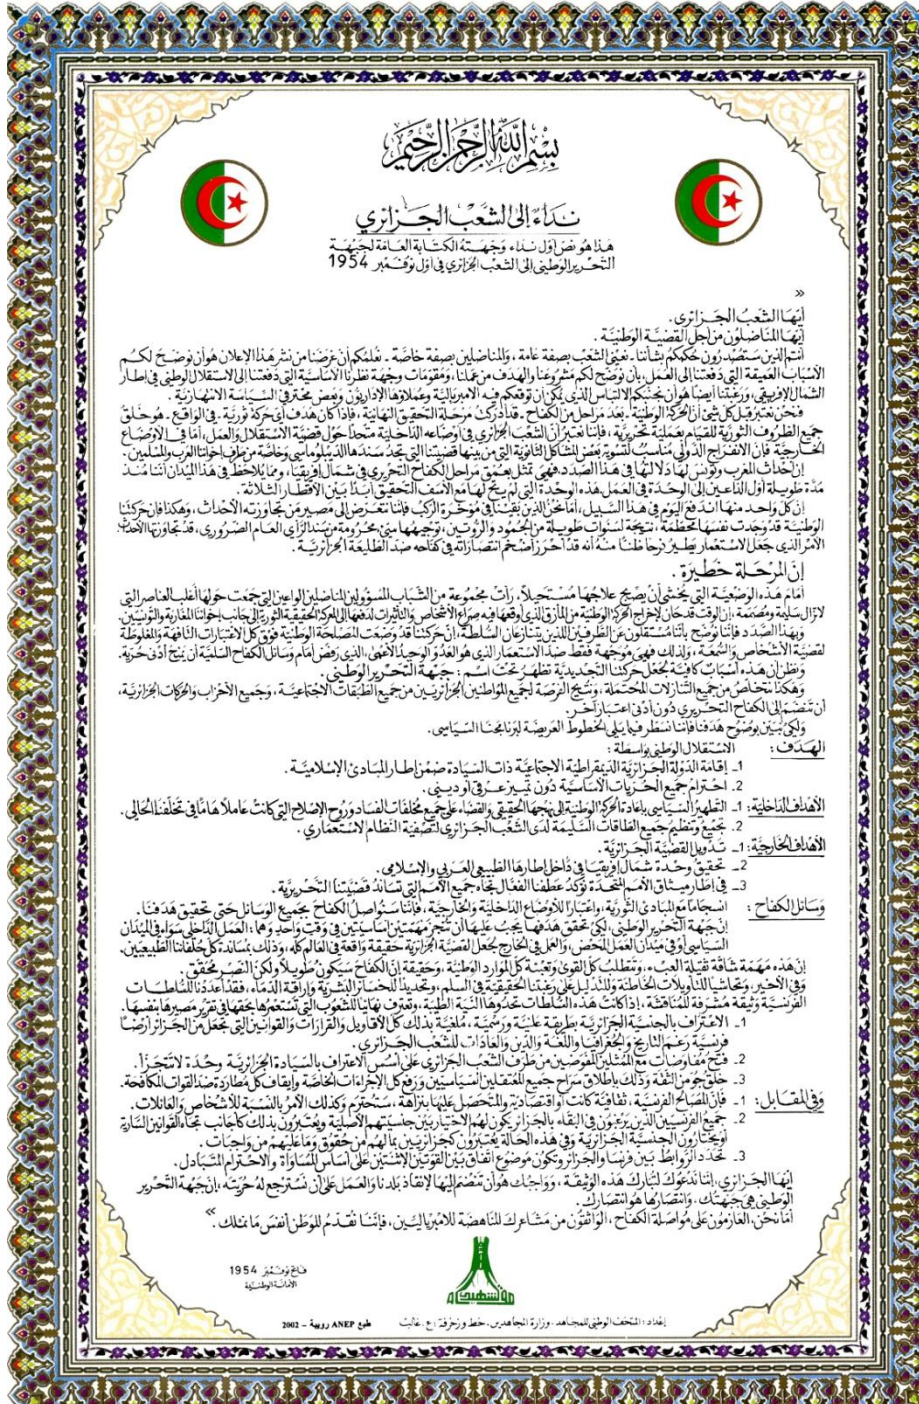 بسم الله الرحمن الرحيم
نداء إلى الشعب الجزائري
هذا هو نص أول نداء وجهته الكتابة العامة لجبهة
التحرير الوطني إلى الشعب الجزائري في أول نوفمبر 1954
»
أيها الشعب الجزائري.
أيها المناضلون من أجل القضية الوطنية.
أنتم الذين ستصدرون حكمكم بشأننا ـ نعني الشعب بصفة عامة، والمناضلين بصفة خاصة ـ نعلمكم أن غرضنا من نشر هذا الإعلان هو أن نوضح لكم
الأسباب العميقة التي دفعتنا إلى العمل، بأن نوضح لكم مشروعنا والهدف من عملنا، ومقومات وجهة نظرنا الأساسية التي دفعتنا إلى الاستقلال الوطني في إطار
الشمال الإفريقي، ورغبتنا أيضا هو أن نجنبكم الالتباس الذي يمكن أن توقعكم فيه الامبريالية وعملاؤها الإداريون وبعض محترفي السياسة الانتهازية.
فنحن نعتبر قبل كل شيء أن الحركة الوطنية ـ بعد مراحل من الكفاح ـ قد أدركت مرحلة التحقيق النهائية، فإذا كان هدف أي حركة ثورية ـ في الواقع ـ هو خلق
جميع الظروف الثورية للقيام بعملية تحريرية، فإننا نعتبر أن الشعب الجزائري في أوضاعه الداخلية متحدا حول قضية الاستقلال والعمل، أما في الأوضاع
الخارجية فإن الانفراج الدولي مناسب لتسوية بعض المشاكل الثانوية التي من بينها قضيتنا التي تجد سندها الدبلوماسي وخاصة من طرف إخواننا العرب والمسلمين.
إن أحداث المغرب وتونس لها دلالتها في هذا الصدد، فهي تمثل بعمق مراحل الكفاح التحرري في شمال إفريقيا، ومما يلاحظ في هذا الميدان أننا منذ
مدة طويلة أول الداعين إلى الوحدة في العمل، هذه الوحدة التي لم يتح لها مع الأسف التحقيق أبدا بين الأقطار الثلاثة.
إن كل واحد منها اندفع اليوم في هذا السبيل، أما نحن الذين بقينا في مؤخرة الركب فإننا نتعرض إلى مصير من تجاوزته الأحداث، وهكذا فإن حركتنا
الوطنية قد وجدت نفسها محطمة، نتيجة لسنوات طويلة من الجمود والروتين، توجيهها سيئ، محرومة من سند الرأي العام الضروري، قد تجاوزتها الأحداث
الأمر الذي جعل الاستعمار يطير فرحا ظنا منه أنه قد أحرز أضخم انتصاراته في كفاحه ضد الطليعة الجزائرية.
إن المرحلة خطيرة.
أمام هذه الوضعية التي يخشى أن يصبح علاجها مستحيلا، رأت مجموعة من الشباب المسؤولين المناضلين الواعين التي جمعت حولها أغلب العناصر التي
لا تزال سليمة ومصممة، إن الوقت قد حان لإخراج الحركة الوطنية من المأزق الذي أوقعها فيه صراع الأشخاص والتأثيرات لدفعها إلى المعركة الحقيقية الثورية إلى جانب إخواننا المغاربة والتونسيين.
وبهذا الصدد فإننا نوضح بأننا مستقلون عن الطرفين اللذين يتنازعان السلطة، إن حركتنا قد وضعت المصلحة الوطنية فوق كل الاعتبارات التافهة والمغلوطة
لقضية الأشخاص والسمعة، ولذلك فهي موجهة فقط ضد الاستعمار الذي هو العدو الوحيد الأعمى، الذي رفض أمام وسائل الكفاح السلمية أن يمنح أدنى حرية.
ونظن أن هذه أسباب كافية لجعل حركتنا التجديدية تظهر تحت اسم: جبهة التحرير الوطني.
وهكذا نتخلص من جميع التنازلات المحتملة، ونتيح الفرصة لجميع المواطنين الجزائريين من جميع الطبقات الاجتماعية، وجميع الأحزاب والحركات الجزائرية،
أن تنضم إلى الكفاح التحريري دون أدنى اعتبار آخر.
ولكي نبين بوضوح هدفنا فإننا نسطر فيما يلي الخطوط العريضة لبرنامجنا السياسي.
الهدف: الاستقلال الوطني بواسطة:
1ـ إقامة الدولة الجزائرية الديمقراطية الاجتماعية ذات السيادة ضمن إطار المبادئ الإسلامية.
2ـ احترام جميع الحريات الأساسية دون تمييز عرقي أو ديني.
الأهداف الداخلية: 1ـ التطهير السياسي بإعادة الحركة الوطنية إلى نهجها الحقيقي والقضاء على جميع مخلفات الفساد وروح الإصلاح التي كانت عاملا هاما في تخلفنا الحالي.
2ـ تجميع وتنظيم جميع الطاقات السليمة لدى الشعب الجزائري لتصفية النظام الاستعماري.
الأهداف الخارجية: 1ـ تدويل القضية الجزائرية.
2ـ تحقيق وحدة شمال إفريقيا في داخل إطارها الطبيعي العربي والإسلامي.
3ـ في إطار ميثاق الأمم المتحدة نؤكد عطفنا الفعال تجاه جميع الأمم التي تساند قضيتنا التحريرية.
وسائل الكفاح: انسجاما مع المبادئ الثورية، واعتبارا للأوضاع الداخلية والخارجية، فإننا سنواصل الكفاح بجميع الوسائل حتى تحقيق هدفنا.
إن جبهة التحرير الوطني، لكي تحقق هدفها يجب عليها أن تنجز مهمتين أساسيتين في وقت واحد وهما: العمل الداخلي سواء في الميدان
السياسي أو في ميدان العمل المحض، والعمل في الخارج لجعل القضية الجزائرية حقيقة واقعة في العالم كله، وذلك بمساندة كل حلفائنا الطبيعيين.
إن هذه مهمة شاقة ثقيلة العبء، وتتطلب كل القوى وتعبئة كل الموارد الوطنية، وحقيقة إن الكفاح سيكون طويلا ولكن النصر محقق.
وفي الأخير، وتحاشيا للتأويلات الخاطئة وللتدليل على رغبتنا الحقيقية في السلم، وتحديدا للخسائر البشرية وإراقة الدماء، فقد أعددنا للسلطات
الفرنسية وثيقة مشرفة للمناقشة، إذا كانت هذه السلطات تحدوها النية الطيبة، وتعترف نهائيا للشعوب التي تستعمرها بحقها في تقرير مصيرها بنفسها.
1ـ الاعتراف بالجنسية الجزائرية بطريقة علنية ورسمية، ملغية بذلك كل الأقاويل والقرارات والقوانين التي تجعل من الجزائر أرضا
فرنسية رغم التاريخ والجغرافيا واللغة والدين والعادات للشعب الجزائري.
2ـ فتح مفاوضات مع الممثلين المفوضين من طرف الشعب الجزائري على أسس الاعتراف بالسيادة الجزائرية وحدة لا تتجزأ.
3ـ خلق جو من الثقة وذلك بإطلاق سراح جميع المعتقلين السياسيين ورفع كل الإجراءات الخاصة وإيقاف كل مطاردة ضد القوات المكافحة.
وفي المقابل: 1ـ فإن المصالح الفرنسية، ثقافية كانت أو اقتصادية والمتحصل عليها بنزاهة، ستحترم وكذلك الأمر بالنسبة للأشخاص والعائلات.
2ـ جميع الفرنسيين الذين يرغبون في البقاء بالجزائر يكون لهم الاختيار بين جنسيتهم الأصلية ويعتبرون بذلك كأجانب تجاه القوانين السارية
أو يختارون الجنسية الجزائرية وفي هذه الحالة يعتبرون كجزائريين بما لهم من حقوق وما عليهم من واجبات.
3ـ تحدد الروابط بين فرنسا والجزائر وتكون موضوع اتفاق بين القوتين الإثنتين على أساس المساواة والاحترام المتبادل.
أيها الجزائري، إننا ندعوك لتبارك هذه الوثيقة، وواجبك هو أن تنضم إليها لإنقاذ بلدنا والعمل على أن نسترجع له حريته، إن جبهة التحرير
الوطني هي جبهتك، وانتصارها هو انتصارك.
أما نحن، العازمون على مواصلة الكفاح، الواثقون من مشاعرك المناهضة للامبرياليين، فإننا نقدم للوطن أنفس ما نملك.»
فاتح نوفمبر 1954
الأمانة الوطنية
إعداد: المتحف الوطني للمجاهد ـ وزارة المجاهدين. خط وزخرفة: ع. غالب
طبع ANEP رويبة – 2002